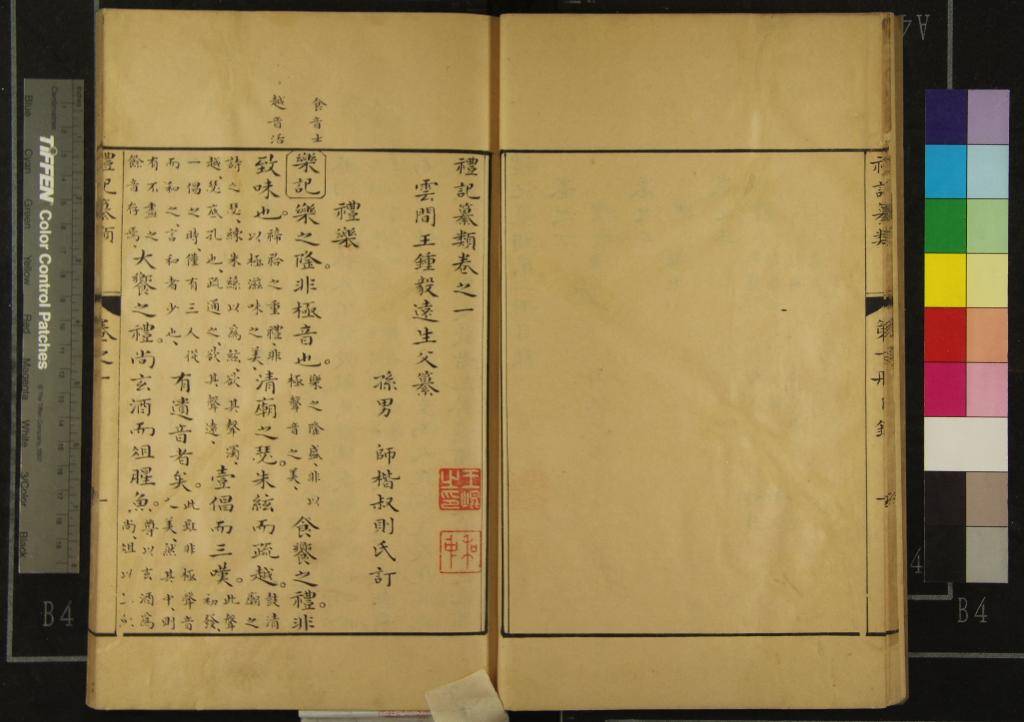 禮記纂類
禮記纂類卷之一
雲間王鍾毅遠生父纂
孫男 師楷叔則氏訂
禮樂
食音士
越音活
樂記樂之隆。非極音也。樂之隆盛、非以極聲音之美、食饗之禮。非
致味也。禘祫之重禮、非以極滋味之美、清廟之瑟。朱絃而疏越。鼓清廟之
詩之瑟、練朱絲以為絃、欲其聲濁、越、瑟底孔也、疏通之、欲其聲遠、壹倡而三嘆。此聲初發、
一倡之時、僅有三人從而和之、言和者少也、有遺音者矣。此雖非極聲音之美、然其中則
有不盡之餘音存焉、大饗之禮。尚玄酒而俎腥魚。尊以玄酒為尚、俎以
禮記纂類
卷之一
TIFFEN Color Control Patches
B4
B4
A4